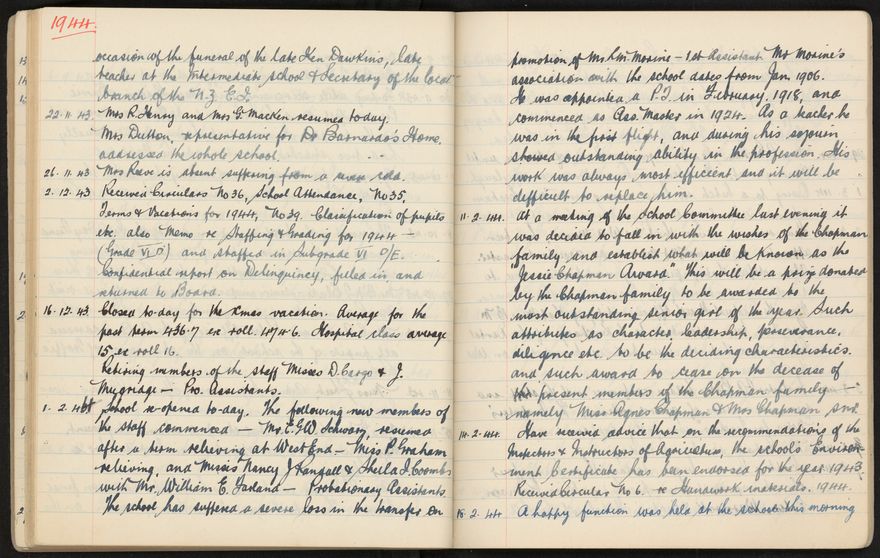 1944.
occasion of the funeral of the late Ken Dawkins, late
teacher at the Intermediate school & Secretary of the local
branch of the N.Z. E.I.
22.11.43. Mrs R. Henry and Mrs G. MacKen resumed today.
Mrs Dutton, representative for Dr Barnardo's Home,
addressed the whole school.
26.11.43 Mrs Reeve is absent suffering from a cold.
2.12.43 Received Circulars No 36, School Attendance, No 35,
Terms & Vacations for 1944, No 39. Classification of pupils
etc. also Memo re Staffing & Grading for 1944 -
(Grade VI D) and staffed in Subgrade VI D/E.
Confidential report on Delinquency, filled in, and
returned to Board.
16.12.43 Closed to-day for the Xmas vacation. Average for the
past term 436.7 ex roll 474.6. Hospital class average
15 ex roll 16.
Retiring members of the staff Misses D. Cargo & J.
Mugridge - Pro. Assistants.
1.2.44 School re-opened to-day. The following new members of
the staff commenced - Mr. E.G.W Schwarz, resumed
after a term relieving at West End - Miss P. Graham
relieving, and Misses Nancy J. & Sheila J. Coombs
with Mr. William E. - Probationary Assistants.
The school has suffered a severe loss in the transfer on
promotion of Mr. Morine - 1st Assistant. Mr Morine's
association with the school dates from Jan 1906.
He was appointed a P.T. in February, 1918, and
commenced as Ass. Master in 1924. As a teacher he
was in the first flight, and during his sojourn
showed outstanding ability in the profession. His
work was always most efficient and it will be
difficult to replace him.
11.2.44. At a meeting of the School Committee last evening it
was decided to fall in with the wishes of the Chapman
family and establish what will be known as the
Jessie Chapman Award. This will be a prize donated
by the Chapman family to be awarded to the
most outstanding senior girl of the year. Such
attributes as character, leadership, perseverance,
diligence etc. to be the deciding characteristics.
and such award to cease on the decease of
present members of the Chapman family -
namely Miss Agnes Chapman & Mrs Chapman, snr.
14.2.44. Have received advice that on the recommendation of the
Inspectors & Instructors of Agriculture, the school's Environ-
ment Certificate has been endorsed for the year 1943.
Received Circular No 6. re Handwork materials. 1944.
15.2.44 A happy function was held at the school this morning